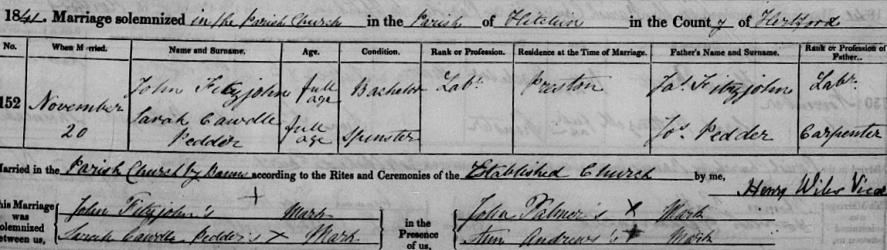 1841 Marriage solemnized in the Parish Church in the Parish of Hitchin in the County of Hertford
No. When Married. Name and Surname. Age. Condition. Rank or Profession. Residence at the Time of Marriage. Father's Name and Surname. Rank or Profession of Father.
152 November 20 John Fitzjohn full age Bachelor Labr. Preston Jas. Fitzjohn Labr.
Sarah Cawdle Pedder full age Spinster Jos. Pedder Carpenter
Married in the Parish Church by Banns according to the Rites and Ceremonies of the Established Church by me, Henry Wiles Vicar
This Marriage was solemnized between us, John Fitzjohn's + Mark in the Presence of us, John Palmer's X Mark
Sarah Cawdle Pedder's X Mark Ann Andrews's + Mark